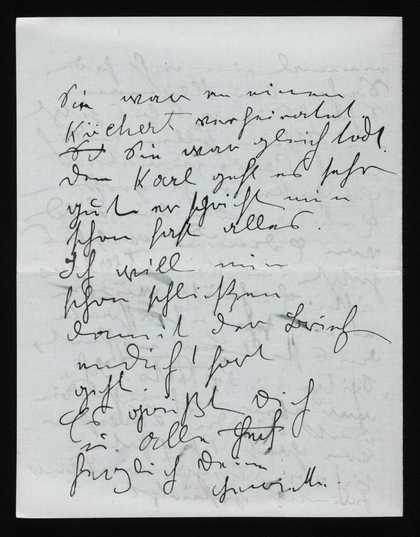 Sie war an einen
Köchert verheiratet.
Sie war gleich todt.
dem Karl geht es sehr
gut er spricht nun
schon fast alles.
Ich will nun
schon schließen
damit der Brief
endlich! fort
geht.
Es grüßt Dich
u. alle
herzlich Deine